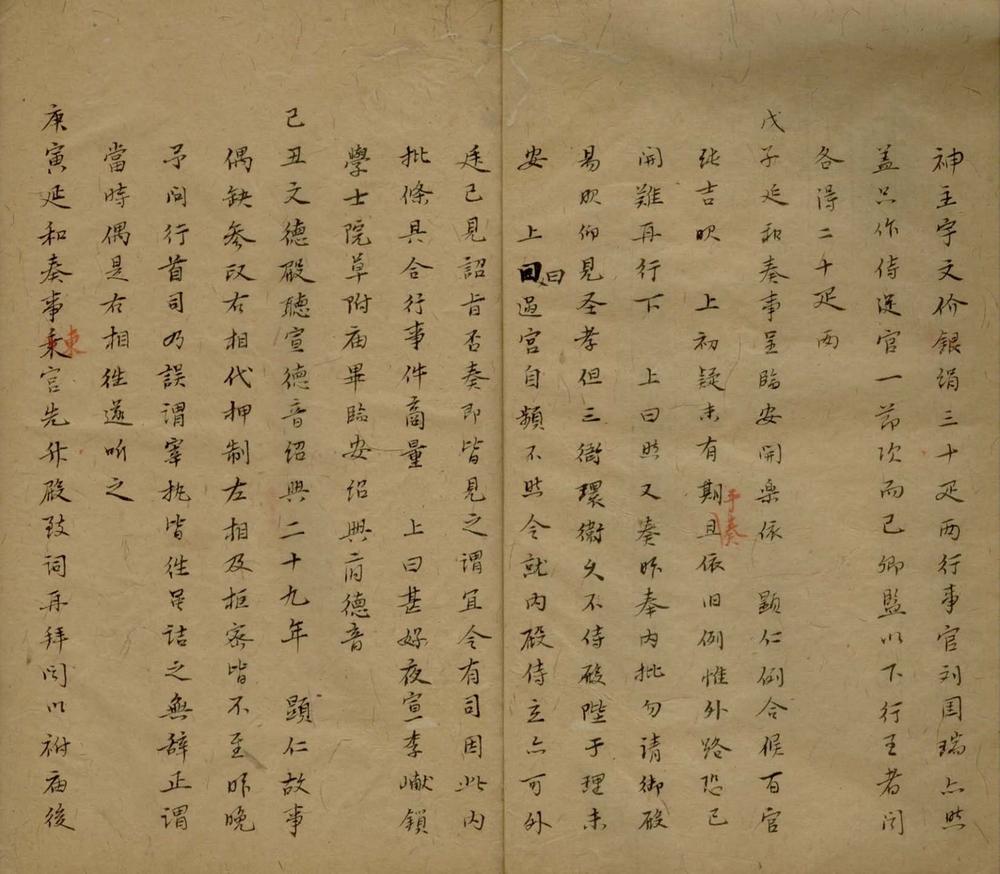 神主宇文价銀絹三十疋两行事官刘国瑞亦然
盖只作侍從官一節次而已卿監以下行王者闻
各得二十疋两
戊子延和奏事呈臨安開樂依　顯仁例合候百官
純吉欤　上初疑未有期且依旧例惟外路恐已
予奏
開難再行下　上曰然又奏昨奉内批勿請御殿
易欤仰見圣孝但三衙環衛久不侍殿陛于理未
安　上回曰過宫自頻不然令就内殿侍立亦可外
廷已見詔旨否奏即皆見之謂宜令有司因此内
批條具合行事件商量　上曰甚好夜宣李巘鎖
學士院草附庙畢臨安绍興府德音
己丑文德殿聽宣德音绍興二十九年　顕仁故事
偶缺參政右相代押制左相及枢密皆不至昨晚
予问行首司乃誤謂宰执皆徃是诘之無辞正謂
當時偶是右相徃遂听之
庚寅延和奏事乘宫先升殿致词再拜闵以祔庙後
東